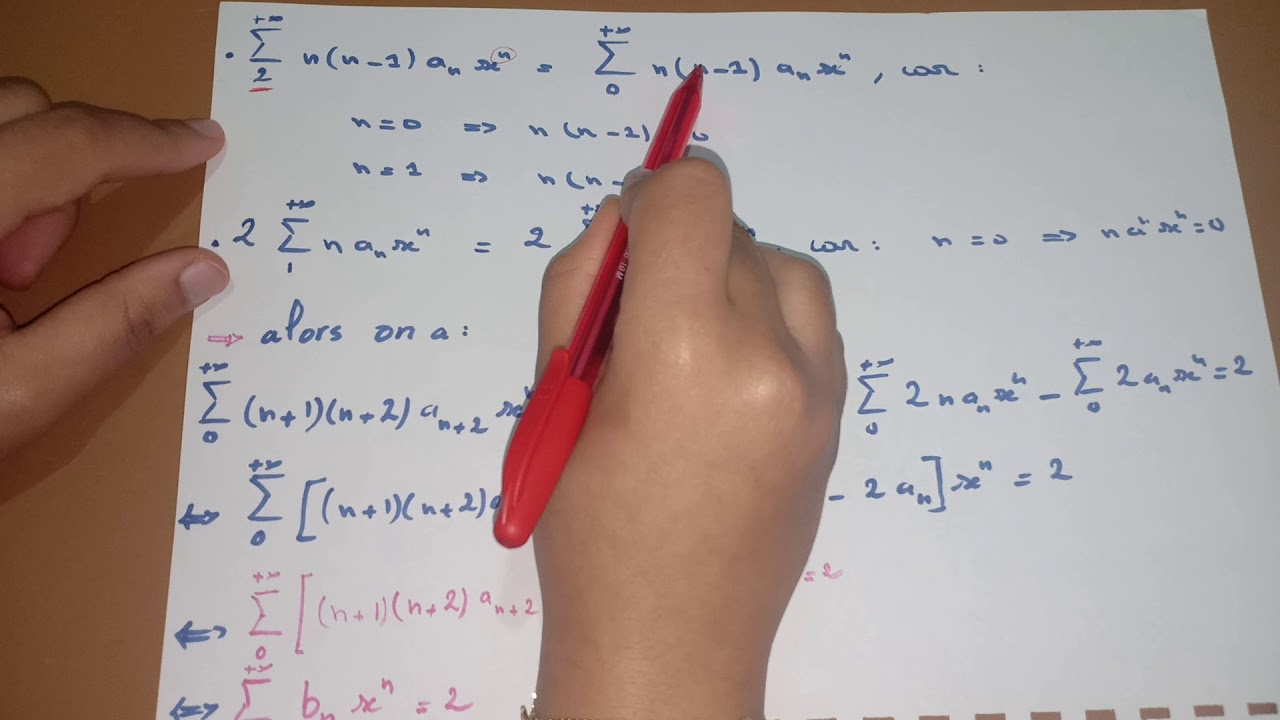 . ∑_{2}^{+∞} n(n-1) a_n x^n = ∑_{0}^{+∞} n(n-1) a_n x^n , car :
n=0 => n(n-1)
n=1 => n(n-
. 2 ∑_{1}^{+∞} n a_n x^n = 2 car : n=0 => n a^n x^n = 0
⇒ alors on a :
∑_{0}^{+∞} (n+1)(n+2) a_{n+2} x^n ∑_{0}^{+∞} 2 n a_n x^n - ∑_{0}^{+∞} 2 a_n x^n = 2
⇔ ∑_{0}^{+∞} [(n+1)(n+2) - 2 a_n] x^n = 2
⇔ ∑_{0}^{+∞} [(n+1)(n+2) a_{n+2} = 2
⇔ ∑^{+∞} b_n x^n = 2